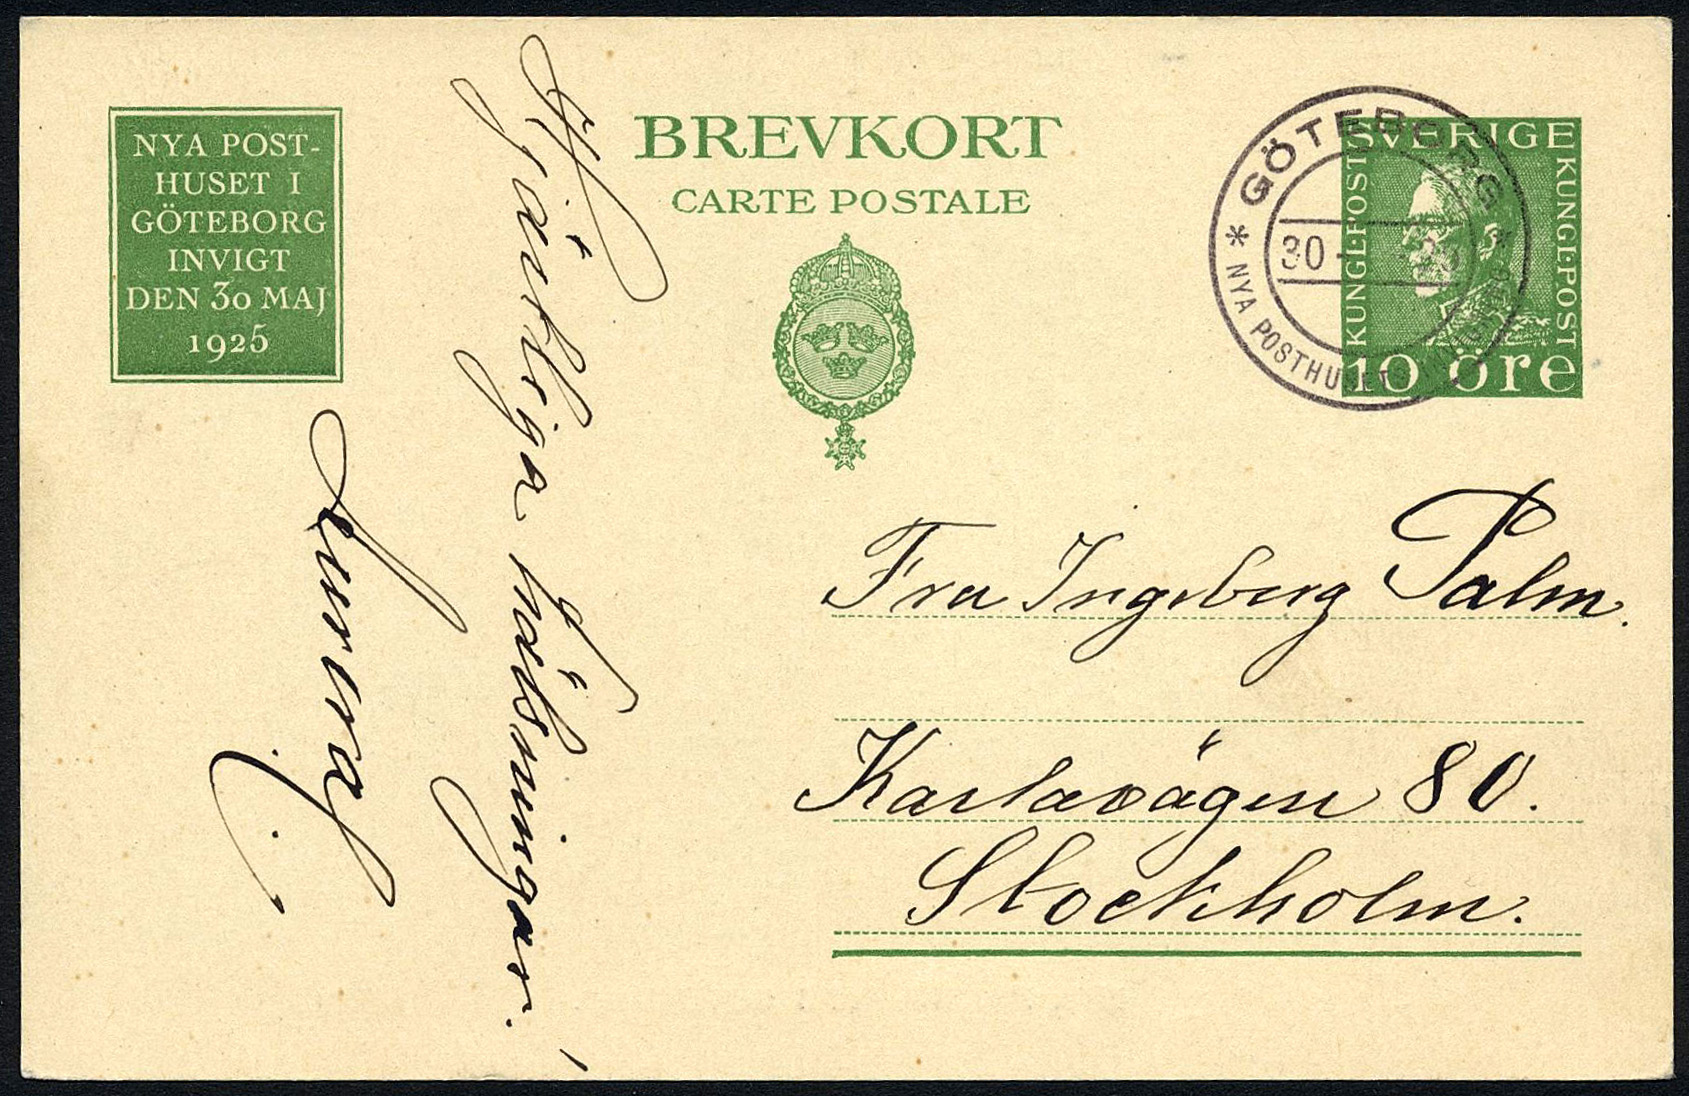 NYA POST-
HUSET I
GÖTEBORG
INVIGT
DEN 30 MAJ
1925
BREVKORT
CARTE POSTALE
GÖTEBORG
30
NYA POSTHUSET
SVERIGE
KUNGL·POST
KUNGL·POST
10 öre
Hjärtliga hälsningar!
Fru Ingeborg Palm.
Karlavägen 80.
Stockholm.